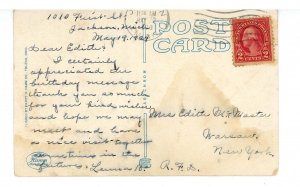 1010 First St.
Jackson, Mich.
May 19, 1924
Dear Edith:
I certainly
appreciated the
birthday message
thank you so much
for your kind wishes
and hope we may
meet and have
a nice visit together
sometime in the
future.
POST CARD
Miss Edith McMaster
Warsaw
New York
R.F.D.